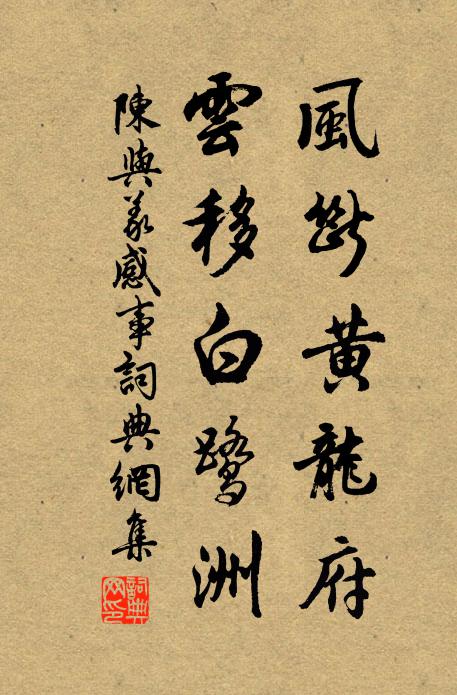 風斷黃龍府
雲移白鷺洲
陳與義感事詞典網集
詞典網印